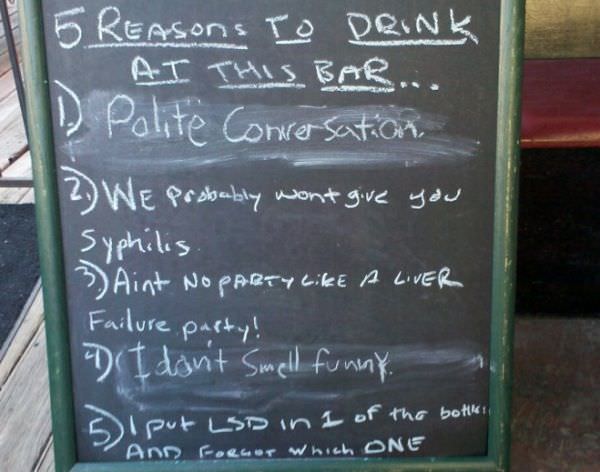 5 REASONS TO DRINK
AT THIS BAR...
1) Polite Conversation.
2.) WE Probably wont give you
Syphilis.
3) Aint NO PARTY LIKE A LIVER
Failure party!
4) I don't Smell funny.
5) I put LSD in 1 of the bottles
AND FORGOT which ONE